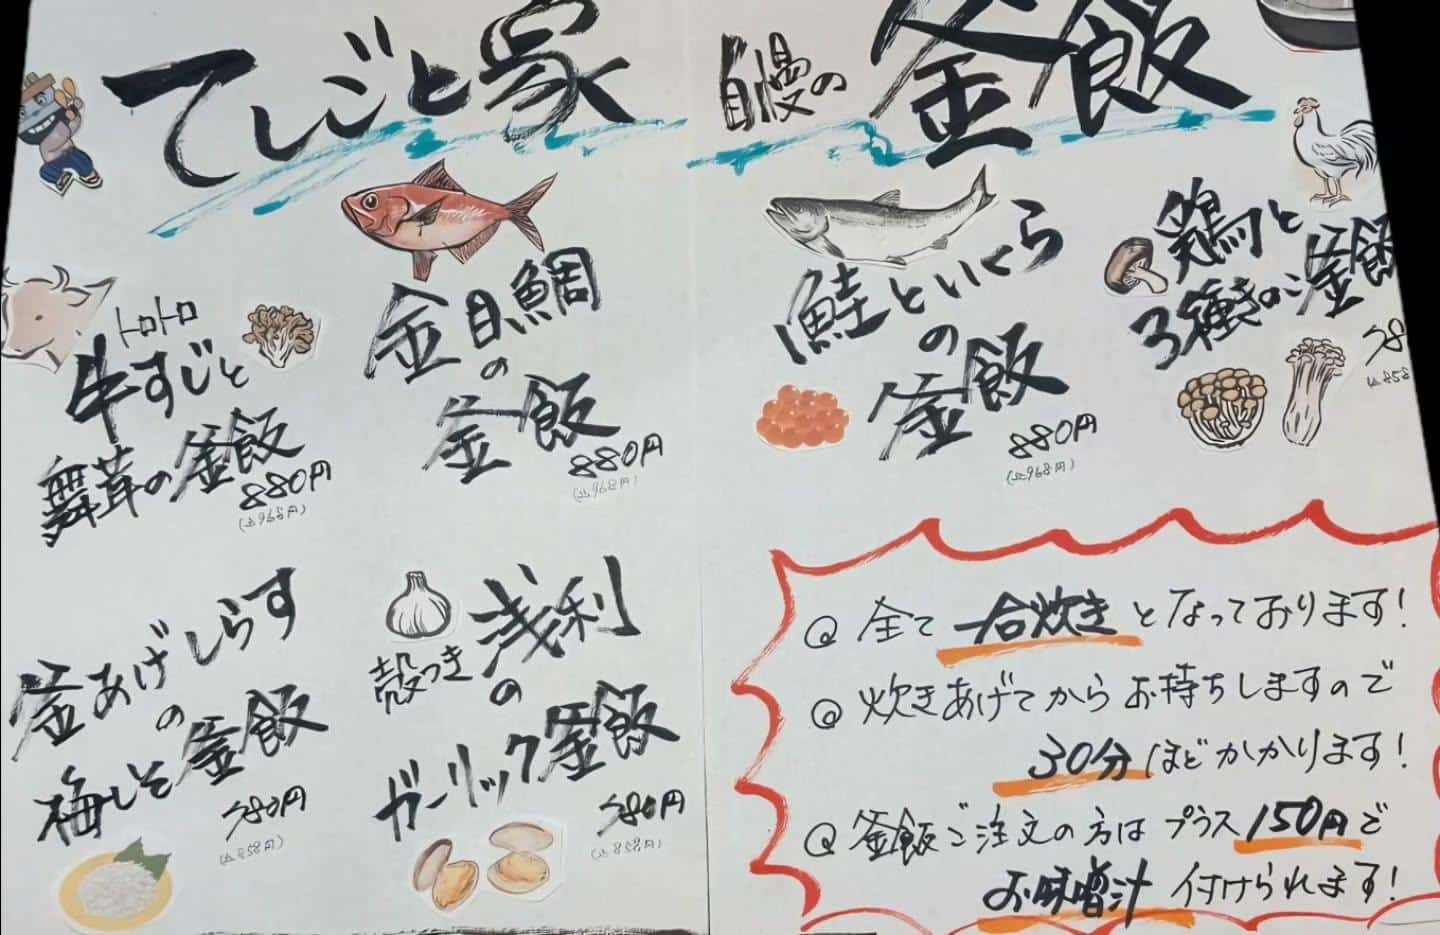 てしごと家
自慢の釜飯
トロトロ
牛すじと
舞茸の釜飯
880円
(込968円)
金目鯛
の
釜飯
880円
(込968円)
鮭といくら
の
釜飯
880円
(込968円)
鶏と
3種きのこ釜飯
78
(込858
釜あげしらす
の
梅しそ釜飯
780円
(込858円)
殻つき浅利
の
ガーリック釜飯
780円
(込858円)
@ 全て一合炊きとなっております!
@ 炊きあげてからお持ちしますので
30分ほどかかります!
@ 釜飯ご注文の方はプラス150円で
お味噌汁付けられます!